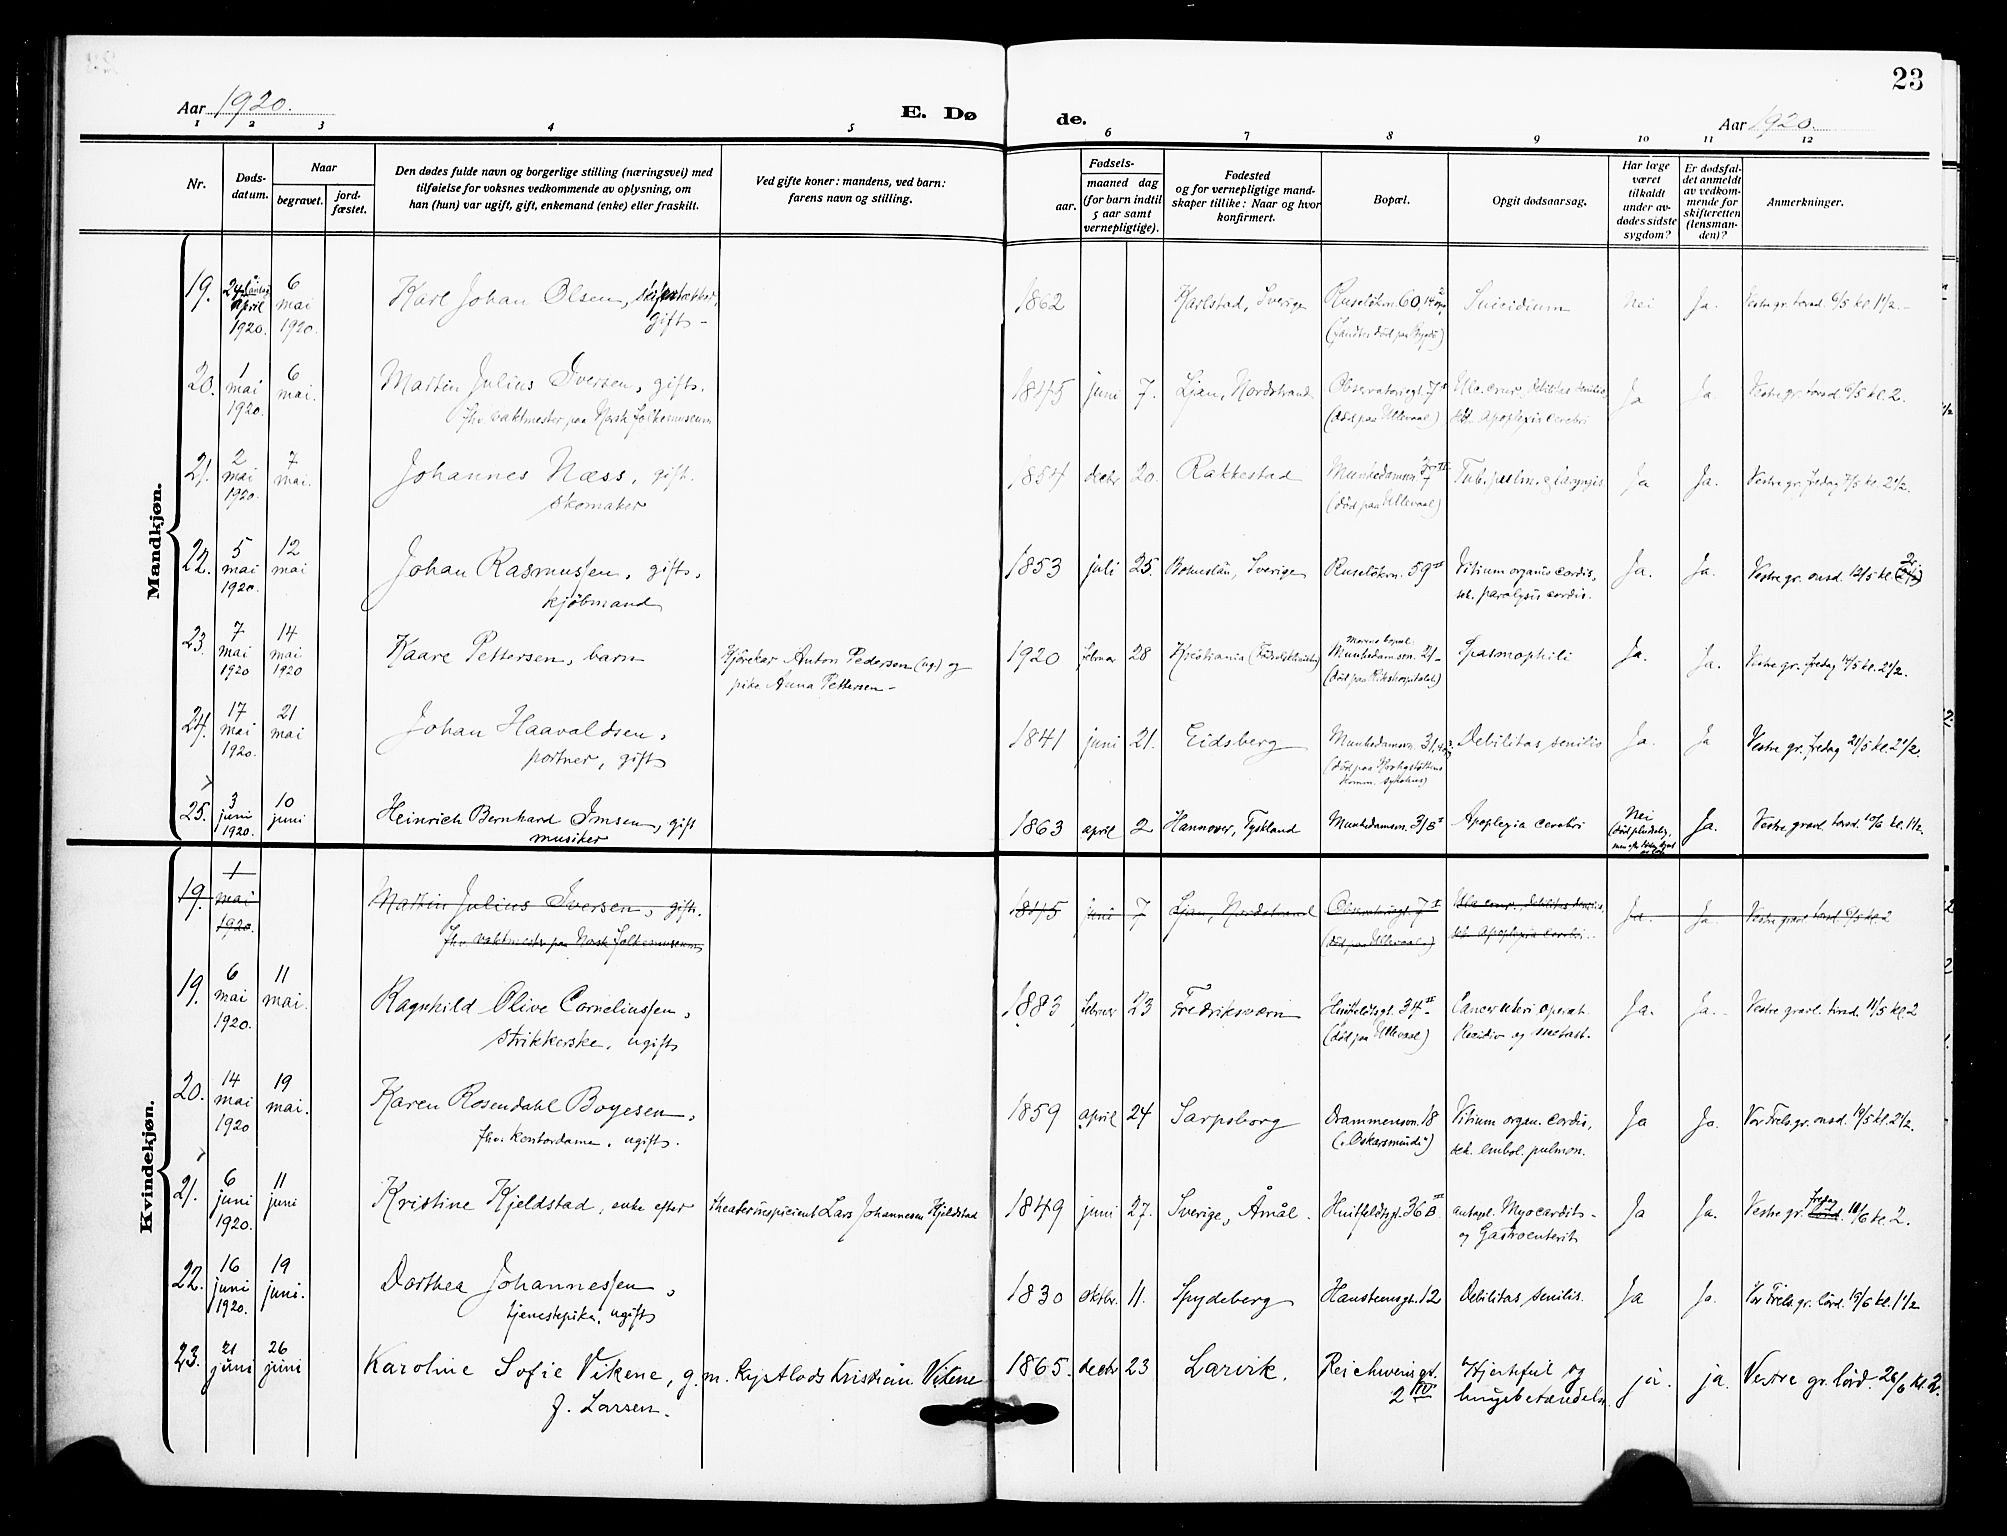 23
Aar 1920.
E. Dø
de.
Aar 1920.
1 2 3 4 5 6 7 8 9 10 11 12
Nr.
Døds-
datum.
Naar
begravet.
jord-
fæstet.
Den dødes fulde navn og borgerlige stilling (næringsvei) med
tilføielse for voksnes vedkommende av oplysning, om
han (hun) var ugift, gift, enkemand (enke) eller fraskilt.
Ved gifte koner: mandens, ved barn:
farens navn og stilling.
Fødsels-
aar.
maaned dag
(for barn indtil
5 aar samt
vernepligtige).
Fødested
og for vernepligtige mand-
skaper tillike: Naar og hvor
konfirmert.
Bopæl.
Opgit dødsaarsag.
Har læge
været
tilkaldt
under av-
dødes sidste
sygdom?
Er dødsfal-
det anmeldt
av vedkom-
mende for
skifteretten
(lensman-
den)?
Anmerkninger.
Mandkjøn.
19. 24 april 1920. 6 mai 1920. Karl Johan Olsen,
gift -
1862 Karlstad, Sverige Ruseløkvn. 60, Suicidium Nei Ja. Vestre gr. torsd. 6/5 kl. 1 1/2. -
20. 1 mai 1920. 6 mai. Martin Julius Iversen, gift.
fhv. vaktmester paa Norsk Folkemuseum
1845 juni 7. Ljan, Nordstrand Observatoriegt. 7 I Ulc. crur., Debilitas senilis, Ja Ja. Vestre gr. torsd. 6/5 kl. 2.
(død paa Ullevaal) Apoplexia cerebri
21. 2 mai 1920. 7 mai. Johannes Næss, gift.
skomaker
1854 decbr 20. Rakkestad Munkedamsvn. Tub. pulm. & laryngis Ja Ja. Vestre gr. fredag 7/5 kl. 2 1/2.
(død paa Ullevaal)
22. 5 mai 1920. 12 mai Johan Rasmussen, gift,
kjøbmand
1853 juli 25. Bohuslän, Sverige Ruseløkvn. 59 II Vitium organic cordis, Ja. Ja. Vestre gr. onsd. 12/5 kl. 2
sek. paralysis cordis.
23. 7 mai 1920 14 mai 1920 Kaare Pettersen, barn Kjørekar Anton Pedersen (ug.) og
pike Anna Pettersen -
1920 februar 28 Kristiania (Fødselsklinikken) Munkedamsvn. 21 - Spasmophili Ja. Ja. Vestre gr. fredag 14/5 kl. 2 1/2.
(død paa Rikshospitalet)
24. 17 mai 1920. 21 mai Johan Haavaldsen,
portner, gift
1841 juni 21. Eidsberg Munkedamsvn. 31, Debilitas senilis Ja. Ja Vestre gr. fredag 21/5 kl. 2 1/2.
25. 3 juni 1920. 10 juni Heinrich Bernhard Imsen, gift
musiker
1863 april 2 Hannover, Tyskland Munkedamsvn. 3 B I Apoplexia cerebri Nei Ja. Vestre gravl. torsd. 10/6 kl. 1 1/2.
Kvindekjøn.
19. 1 mai 1920. Martin Julius Iversen, gift.
fhv. vaktmester paa Norsk Folkemuseum
1845 juni 7 Ljan, Nordstrand Observatoriegt. 7 I Ulc. crur., Debilitas senilis, Ja. Ja. Vestre gravl. torsd. 6/5 kl. 2
(død paa Ullevaal.) sek. Apoplexia cerebri.
19. 6 mai 1920. 11 mai. Ragnhild Olive Corneliussen,
strikkerske, ugift
1883 februar 23 Fredriksværn Huitfeldtsgt. 34 II Cancer uteri operat. Ja. Ja. Vestre gravl. tirsd. 11/5 kl. 2
(død paa Ullevaal) Recidiv og metast.
20. 14 mai 1920 19 mai. Karen Rosendahl Boyesen,
fhv. kontordame, ugift.
1859 april 24 Sarpsborg Drammensvn. 18 Vitium organ. cordis, Ja Ja. Vor Frels. gr. onsd. 19/5 kl. 2 1/2.
("Oskarsminde") sek. embol. pulmon.
21. 6 juni 1920. 11 juni Kristine Kjeldstad, enke efter theaterinspicient Lars Johannesen Kjeldstad
1849 juni 27. Sverige, Åmål. Huitfeldtsgt. 36 B. III Myocardit - Ja Ja. Vestre gr. fredag 11/6 kl. 2.
og Gastroenterit
22. 16 juni 1920. 19 juni. Dorthea Johannessen,
tjenestepike, ugift
1830 oktbr. 11. Spydeberg Hansteensgt. 12 Debilitas senilis. Ja Ja. Vor Frels. gr. lörd. 19/6 kl. 1 1/2
23. 21 juni 26 juni Karoline Sofie Vikene, g. m. Kristian Vikene
f. Larsen.
1865. decbr 23 Larvik. Reichweinsgt. Hjertefeil og ja. ja. Vestre gr. lörd. 26/6 kl. 2.
2 IV lungebetændelse.